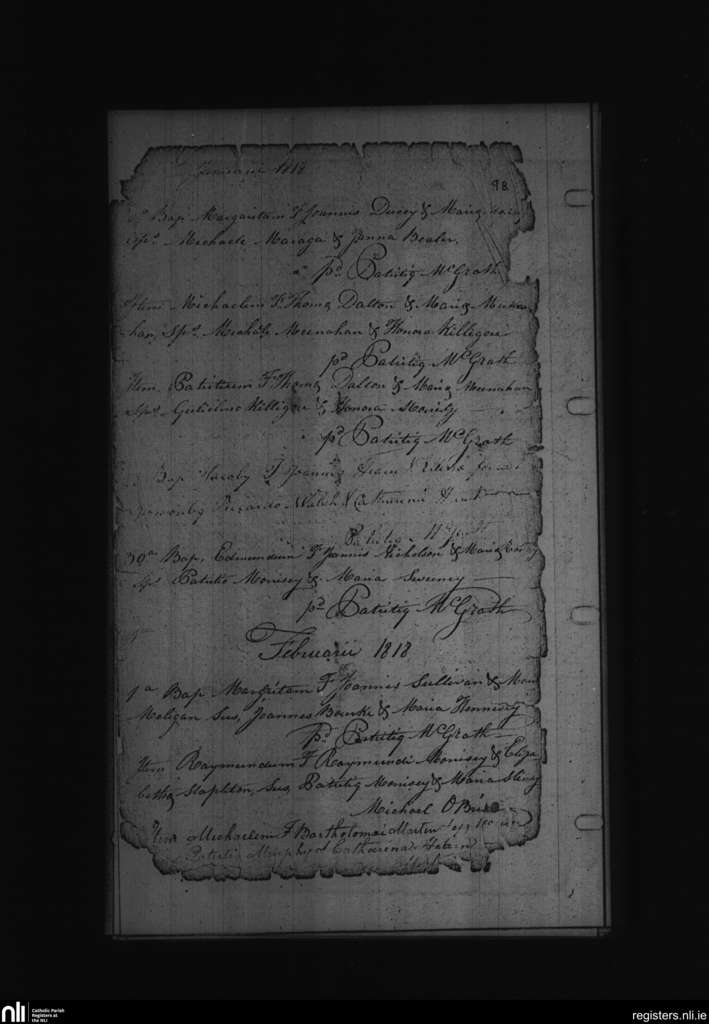 Januarii 1818
98
Bap. Margaritam F Joannis Ducey & Maria
Sps. Michaele Maraga & Joanna Bealer.
pr. Patritiq McGrath
Item Michaelem F. Thoma Dalton & Maria Meena
han, Sps. Michale Meenahan & Honora Killigen
pr Patritiq McGrath
Item Patritium F Thoma Dalton & Maria Meenahan
Sps. Gulielmo Killigen & Honora
pr Patritiq McGrath
Bap Jacoby F Joannis
Sponsoriby Ricardo Walsh & Catherina
Patritiq
30a Bap. Edmundum F Joannis Nicholson & Maria
Sps Patritio Morisey & Maria Sweeney
pr Patritiq McGrath
Februarii 1818
1a Bap Margritam F Joannis Sullivan & Maria
Meligan Sus, Joannes Bourke & Maria Kennedy
pr Patritiq McGrath
Item Raymundum F Raymundi Morisey & Eliza
betha Stapleton, Sus, Patritiq Morisey & Maria
Michael O'Brien
Item Michaelem F Bartholomai Martin
Patritiq Murphy et Catharina
nli
Catholic Parish
Registers at
the NLI
registers.nli.ie